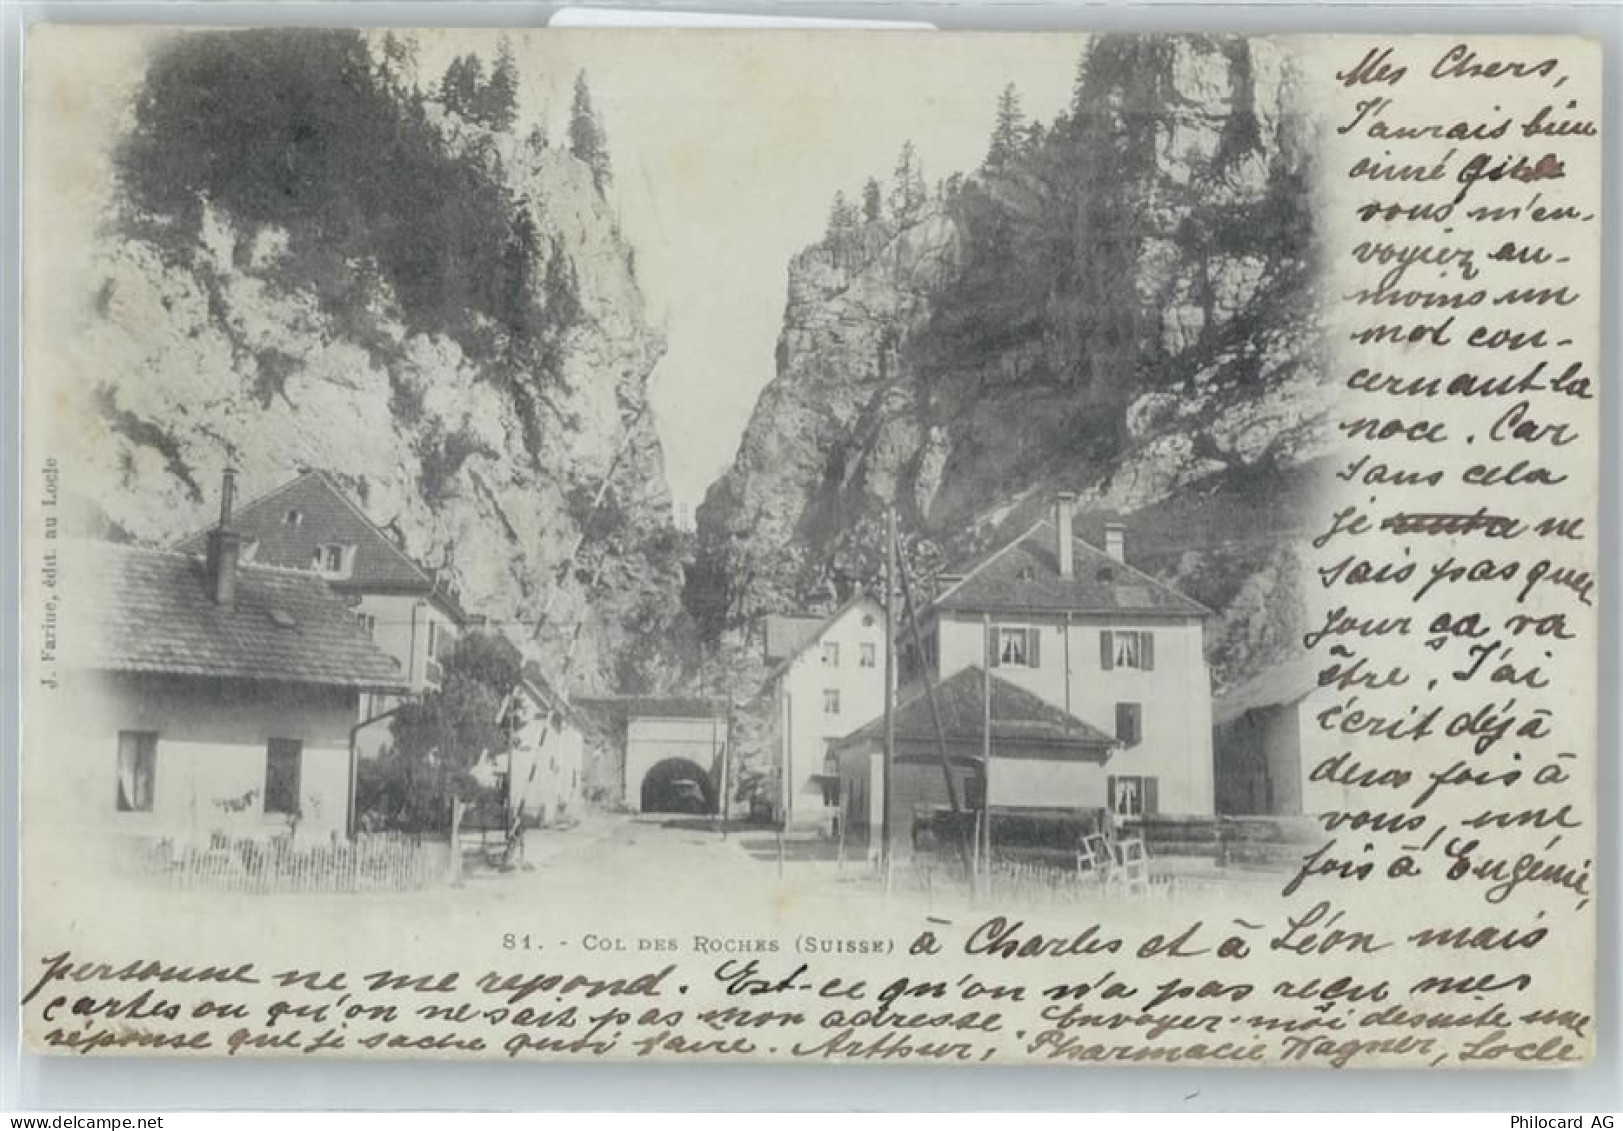 Mes Chers,
J'aurais bien
aimé que
vous m'en-
voyiez au-
moins un
mot con-
cernant la
noce. Car
sans cela
je ne
sais pas quel
jour ça va
être. J'ai
écrit déjà
deux fois à
vous, une
fois à Eugénie,
81. - COL DES ROCHES (SUISSE) à Charles et à Léon mais
personne ne me repond. Est-ce qu'on n'a pas reçu mes
cartes ou qu'on ne sait pas mon adresse. Envoyez-moi desuite une
réponse que je sache quoi faire. Arthur, Pharmacie Wagner, Locle
J. Farine, édit. au Locle
Philocard AG